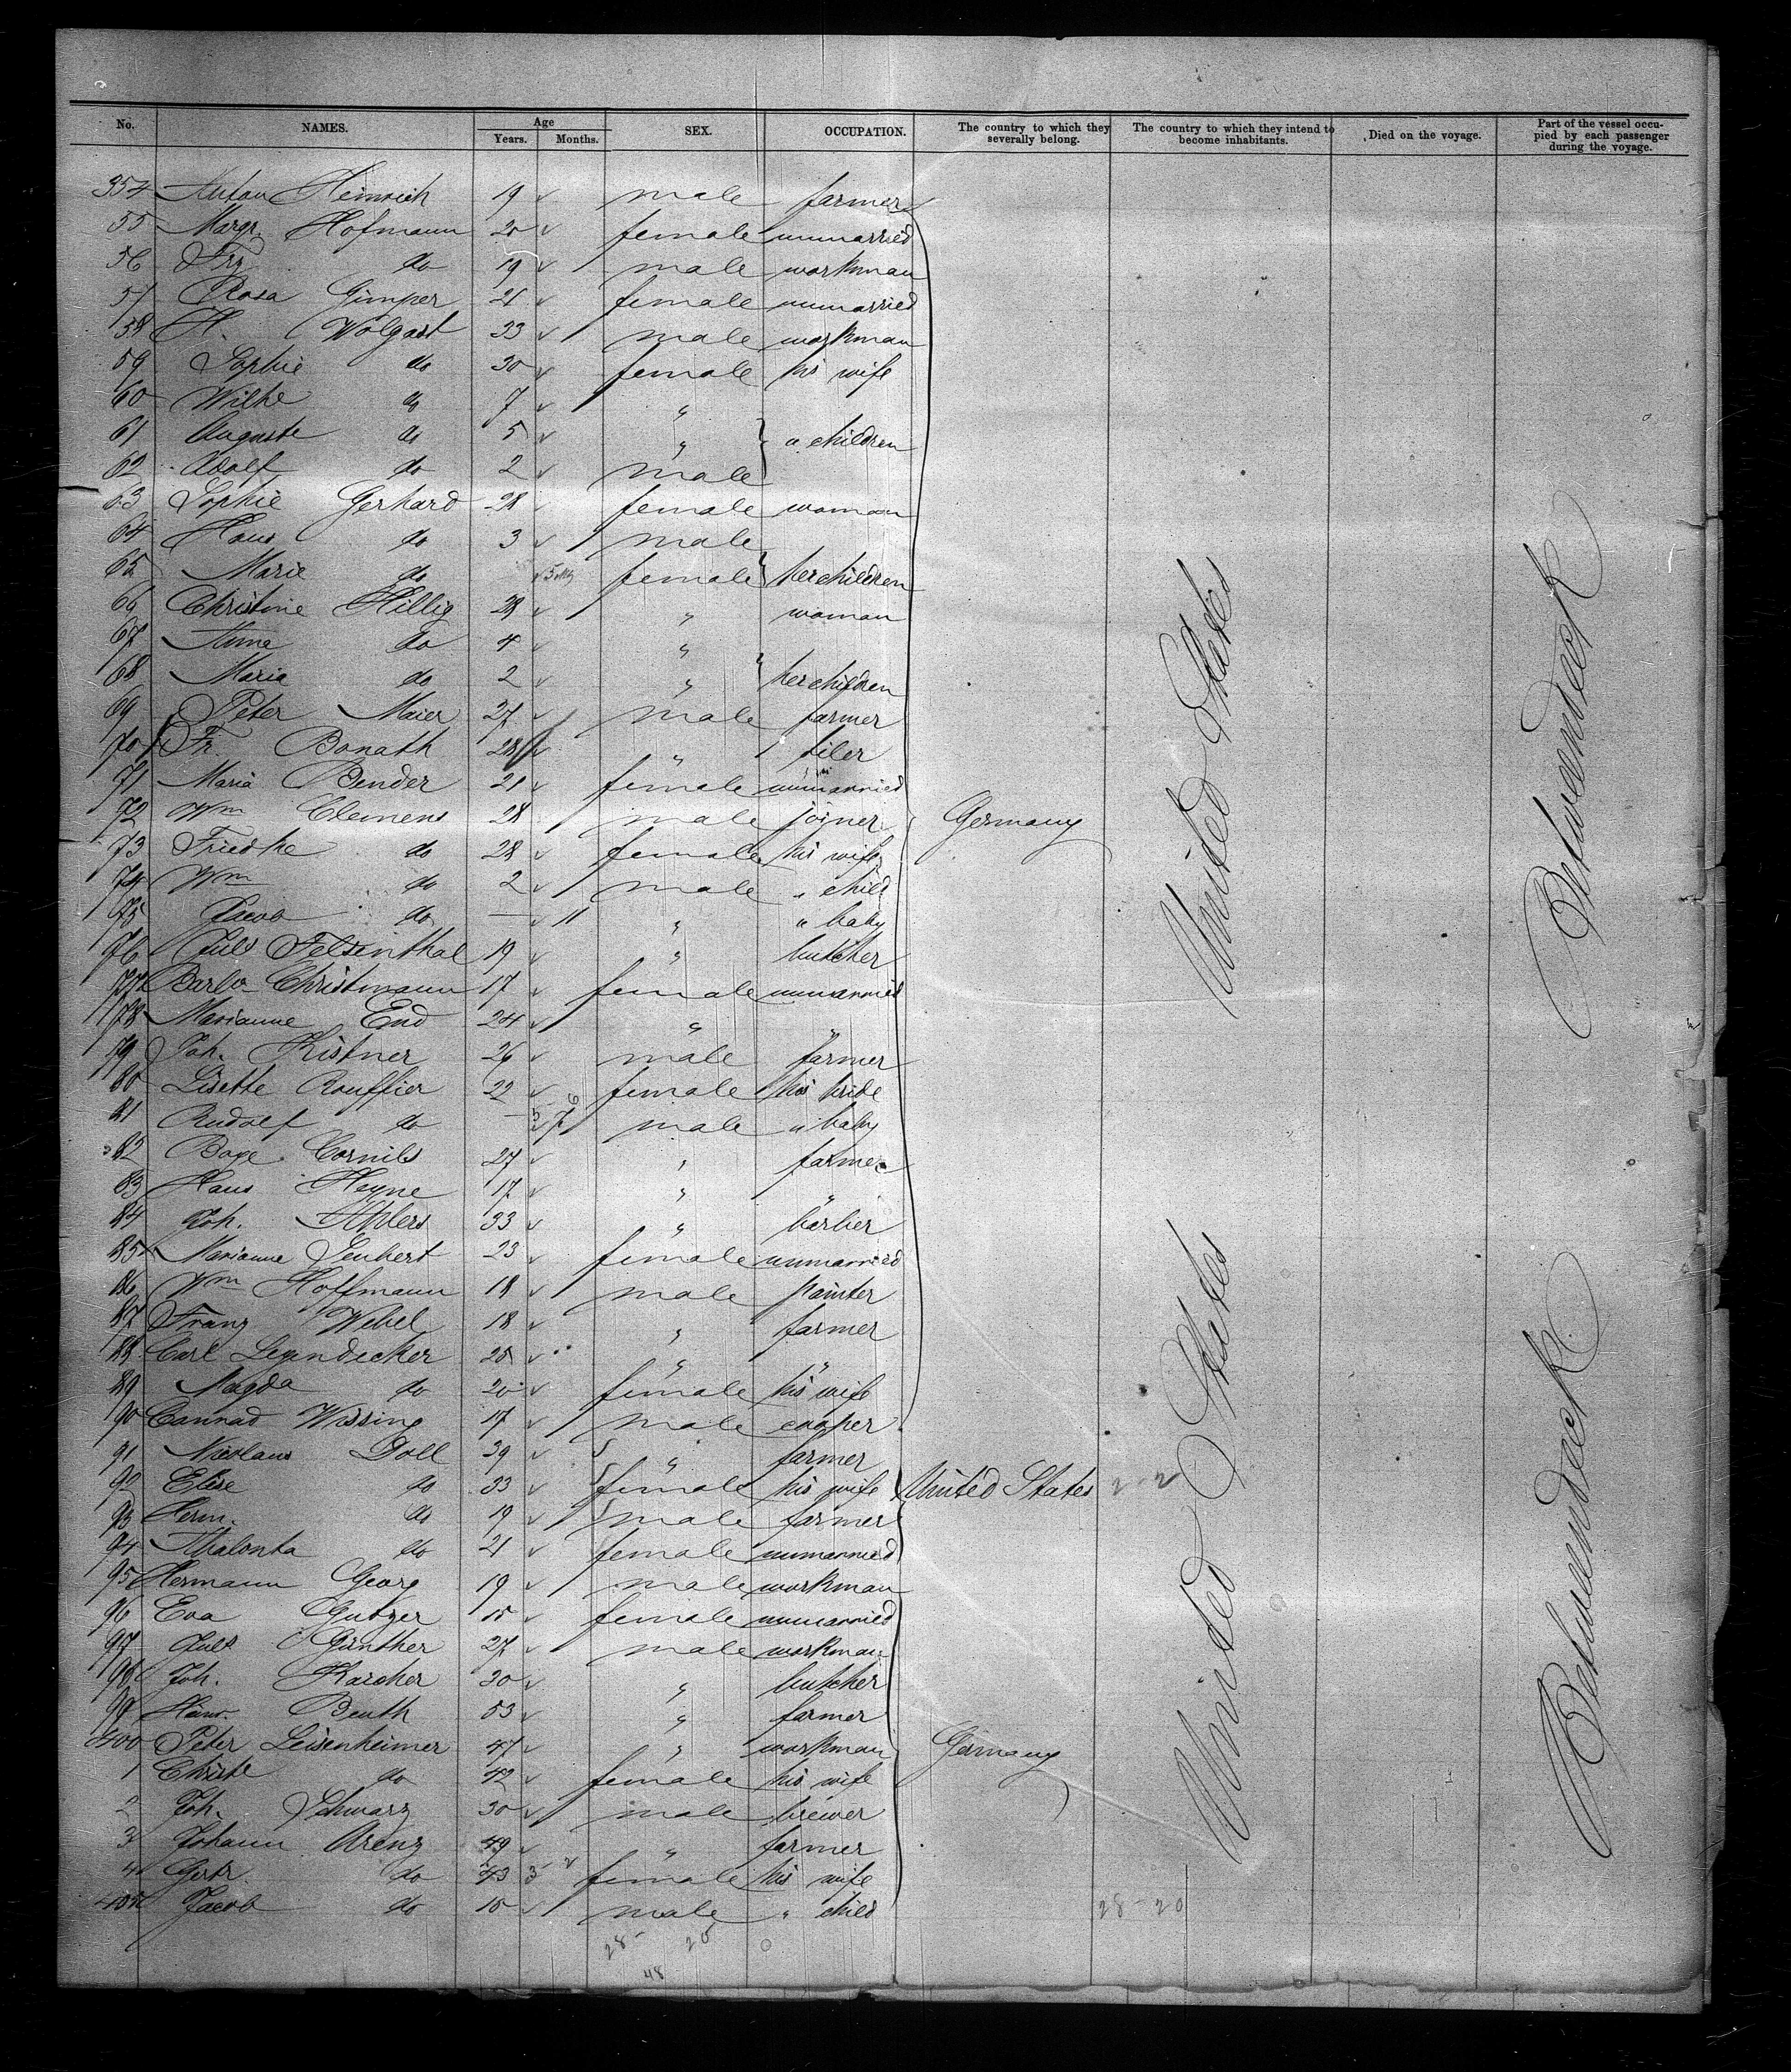 No. NAMES. Age Years. Months. SEX. OCCUPATION. The country to which they severally belong. The country to which they intend to become inhabitants. Died on the voyage. Part of the vessel occupied by each passenger during the voyage.
354 Anton Heinrich 19 male farmer
55 Margr. Hofmann 20 female unmarried
56 Frz do 19 male workman
57 Rosa Gimper 21 female unmarried
58 H. Wolgast 23 male workman
59 Sophie do 30 female his wife
60 Wilhe do 7 "
61 Auguste do 5 " " children
62 Adolf do 2 male
63 Sophie Gerhard 28 female woman
64 Hans do 3 male
65 Marie do 5 female her children
66 Christine Hillig 28 " woman
67 Anne do 4 "
68 Maria do 2 " her children
69 Peter Maier 27 male farmer
70 Fr. Bonath 28 " tiler
71 Maria Bender 21 female unmarried
72 Wm Clemens 28 male joiner Germany United States Betweendeck
73 Friedke do 28 female his wife
74 Wm do 2 male " child
75 Jacob do — 11 " " baby
76 Juls Felsenthal 19 " butcher
77 Barba Christmann 17 female unmarried
78 Marianne End 24 " "
79 Joh. Kistner 26 male farmer
80 Lisette Rouffier 22 female his bride
81 Rudolf do — male " baby
82 Boye Cornils 27 " farmer
83 Hans Heyne 17 " "
84 Joh. Ahlers 33 " barbier
85 Marianne Seubert 23 female unmarried
86 Wm Hoffmann 18 male painter
87 Franz Webel 18 " farmer
88 Carl Leyendecker 25 " "
89 Magda do 20 female his wife
90 Conrad Wissing 17 male cooper
91 Nicolaus Doll 39 " farmer
92 Elise do 33 female his wife United States 2-2
93 Herm. do 19 male farmer
94 do 21 female unmarried
95 Hermann Georg 19 male workman
96 Eva Gutzer female unmarried
97 Juls Günther 27 male workman
98 Joh. Karcher 30 " butcher
99 Beuth 53 " farmer
400 Peter Leisenheimer 47 " workman Germany United States Betweendeck
1 Christe do 42 female his wife
2 Joh. Schwarz 30 male brewer
3 Johann Arenz 49 " farmer
4 Gertr. do 43 female his wife
405 Jacob do 10 male " child
28-20
28- 20
48